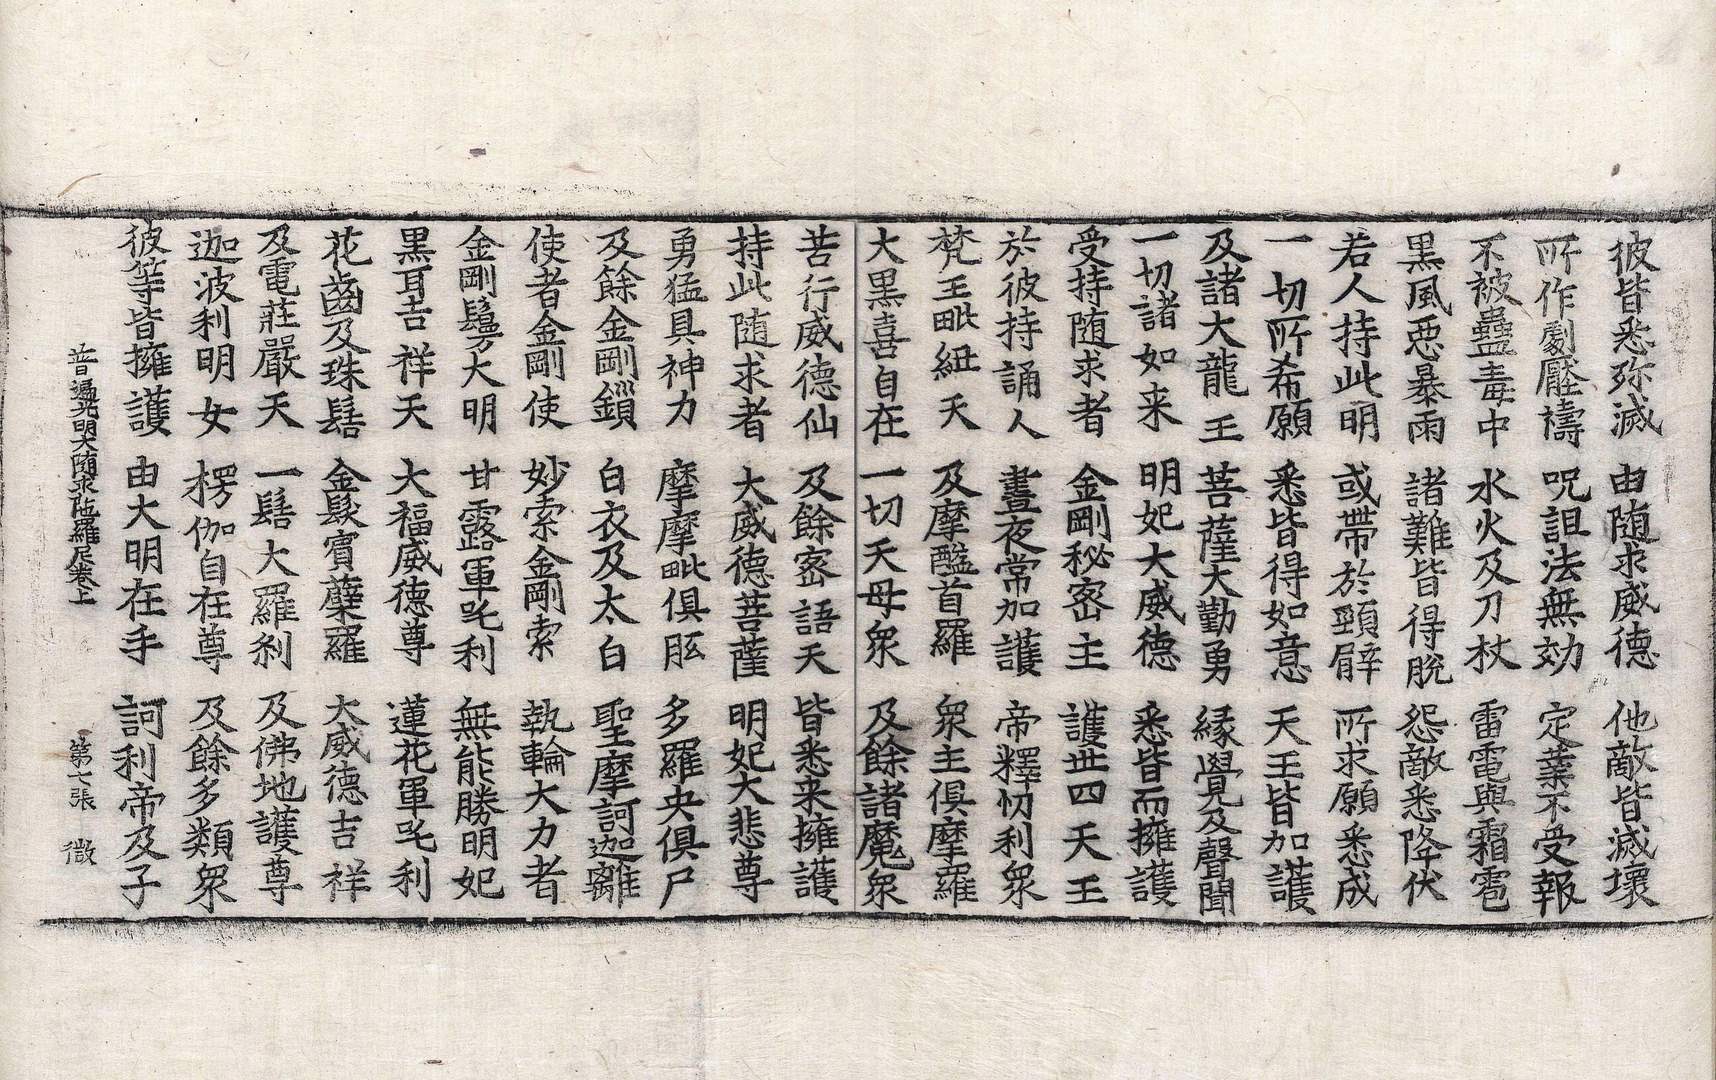 彼皆悉弥滅 由随求威德 他敵皆滅壞
所作劇壓禱 呪詛法無効 定業不受報
不被蠱毒中 水火及刀杖 雷電與霜雹
黑風惡暴雨 諸難皆得脫 怨敵悉降伏
若人持此明 或帶於頸臂 所求願悉成
一切所希願 悉皆得如意 天王皆加護
及諸大龍王 菩薩大勤勇 緣覺及聲聞
一切諸如来 明妃大威德 悉皆而擁護
受持随求者 金剛秘密主 護世四天王
於彼持誦人 晝夜常加護 帝釋忉利衆
梵王毗紐天 及摩醯首羅 衆主俱摩羅
大黑喜自在 一切天母衆 及餘諸魔衆
苦行威德仙 及餘密語天 皆悉来擁護
持此随求者 大威德菩薩 明妃大悲尊
勇猛具神力 摩摩毗俱胝 多羅央俱尸
及餘金剛鏁 白衣及太白 聖摩訶迦離
使者金剛使 妙索金剛索 執輪大力者
金剛鬘大明 甘露軍吒利 無能勝明妃
黑耳吉祥天 大福威德尊 蓮花軍吒利
花齒及珠髻 金髮賓蘖羅 大威德吉祥
及電莊嚴天 一髻大羅刹 及佛地護尊
迦波利明女 楞伽自在尊 及餘多類衆
彼等皆擁護 由大明在手 訶利帝及子
普遍光明大随求陁羅尼卷上 第七張 微